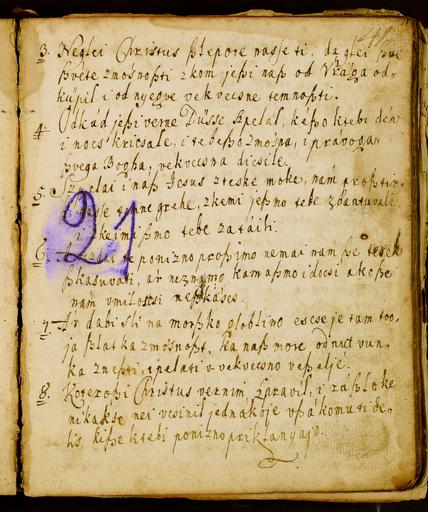 3. Neglei Christus ßlepore nasse ti, da glei pve
ßvete zmosnoßti z kom jeßi naß od Vraga od-
kupil i od nyegve vekvecsne temnoßti.
4. Odkud jeßi verne Dusse szpelal, keßo k tebi dén
i nocs kricsale, i tebe ßo zmosna, i pravoga
ßvega Bogha, vekvecsna dicsile.
5. Szpelai i naß Jesus z teske moke, nam
nasse grehe, z kemi jeßmo tebe
i z keimi ßmo tebe zataili.
6. te ponizno proßimo nemai nam ße
ßkasuvati, ar neznamo kam aßmo idocsi ako ße
nam v miloscsi ne ßkáses.
7. Ar da bi sli na morßko globlino esce je tam too,
ja ßlatka zmosnoßt, ka naß more odnut vun,
ka zneßti, i pelati v vekvecsno veßelje.
8. Koteroßi Christus vernim ßpravil, i za ßloke
nikakse nei vcsinil jednakoje vßakomu ti de-
lis, kiße k tebi ponizno priklanyajo.
21